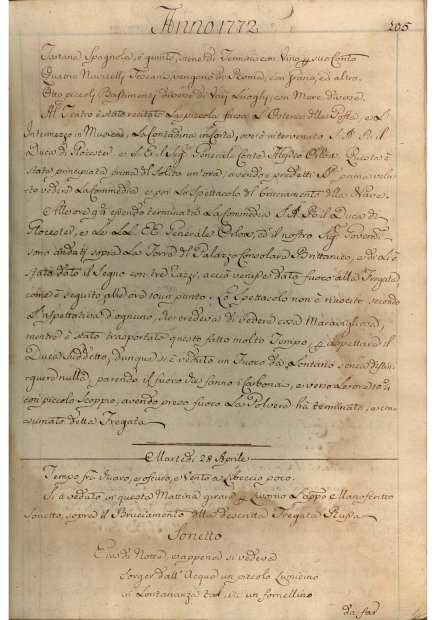 Anno 1772
205
Tartana Spagnola, è quinta, viene di Termine con Vino p suo Conto
Quattro Navicelli Toscani, vengono di Roma, con grano, ed altro.
Otto piccoli Bastimenti diversi di Varj Luoghi, con Merc. diverse.
Al Teatro è stato recitato La piccola farsa L'Osteria della Posta, e L'
Intermezzo in Musica, La Contadina in Corte, ove è intervenuto S. A. R. il
Duca di Glocester, e S. E. il Sig. Generale Conte Alessio Orlow. Questa è
stata principiata prima del Solito un'ora, avendo i predetti prima volu-
to vedere La Commedia, e poi Lo Spettacolo del Bruciamento della Nave.
e alle ore 9 essendo terminata La Commedia S. A. R. il Duca di
Glocester, e Le Lol. E. Generale Orlow, ed il nostro Sig. Govern.
sono andati sopra La Torre del Palazzo Consolare Brittanico, e di Lì è
stato dato il Segno con tre razzi, acciò venisse dato fuoco alla Fregata,
come è seguito alle ore 10 un punto. Lo Spettacolo non è riuscito secondo
L'aspettativa d'ognuno, che credeva di vedere cosa Maravigliosa,
mentre è stato trasportato questo fatto molto Tempo, p aspettare il
Duca Suddetto, dunque si è veduto un Fuoco da Lontano senza distin-
guere nulla, parendo il fuoco che fanno i Carbonai, e verso Le ore 10¾
con piccolo Scoppio, avendo preso fuoco La Polvere ha terminato, e con-
sumato detta Fregata
Martedì 28 Aprile
Tempo frà chiaro, e oscuro, e Vento a Libeccio poco.
Si è veduto in questa Mattina girare p Livorno L'appo Manoscritto
Sonetto, sopra il Bruciamento della descritta Fregata Russa
Sonetto
Era di Notte, e appena si vedeva
Sorger dall'Acqua un piccolo Lumicino
in Lontananza tal, che un fornellino
da far